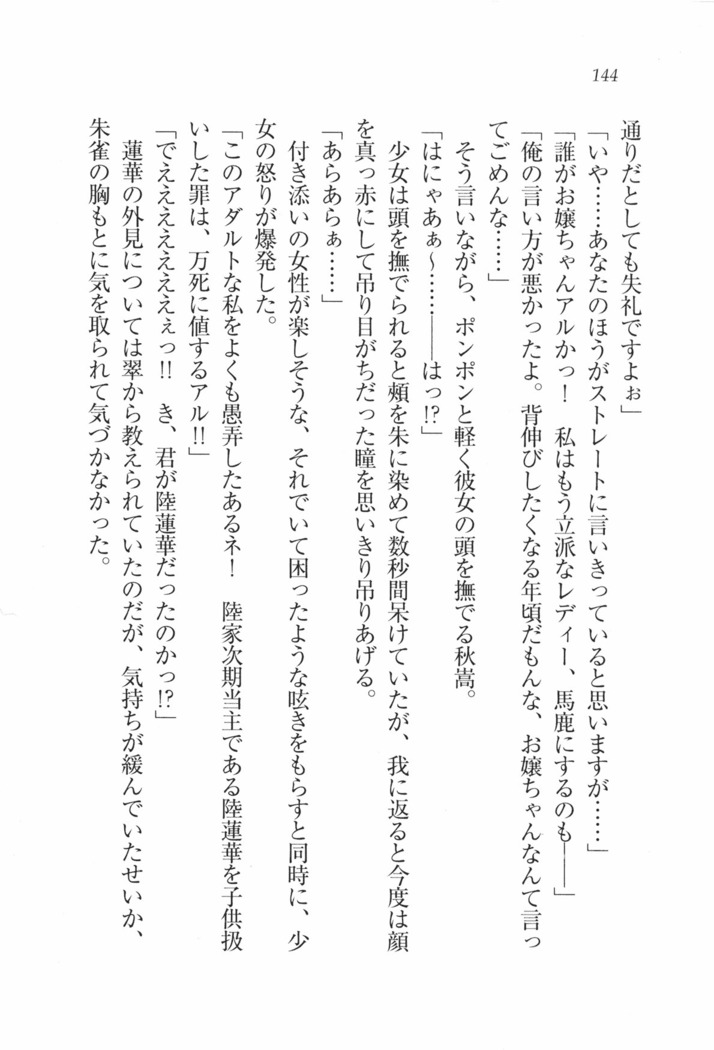 144
通りだとしても失礼ですよぉ」
「いや……あなたのほうがストレートに言いきっていると思いますが……」
「誰がお嬢ちゃんアルかっ！　私はもう立派なレディー、馬鹿にするのも――」
「俺の言い方が悪かったよ。背伸びしたくなる年頃だもんな、お嬢ちゃんなんて言っ
てごめんな……」
そう言いながら、ポンポンと軽く彼女の頭を撫でる秋嵩。
「はにゃあぁ～……――はっ!?」
少女は頭を撫でられると頬を朱に染めて数秒間呆けていたが、我に返ると今度は顔
を真っ赤にして吊り目がちだった瞳を思いきり吊りあげる。
「あらあらぁ……」
付き添いの女性が楽しそうな、それでいて困ったような呟きをもらすと同時に、少
女の怒りが爆発した。
「このアダルトな私をよくも愚弄したあるネ！　陸家次期当主である陸蓮華を子供扱
いした罪は、万死に値するアル!!」
「でえええええええぇっ!!　き、君が陸蓮華だったのかっ!?」
蓮華の外見については翠から教えられていたのだが、気持ちが緩んでいたせいか、
朱雀の胸もとに気を取られて気づかなかった。